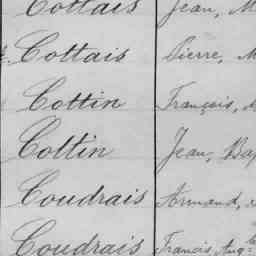 Cottais Jean, M
Cottais Pierre, M
Cottin François,
Cottin Jean, Bap
Coudrais Armand,
Coudrais Francis, Aug=te